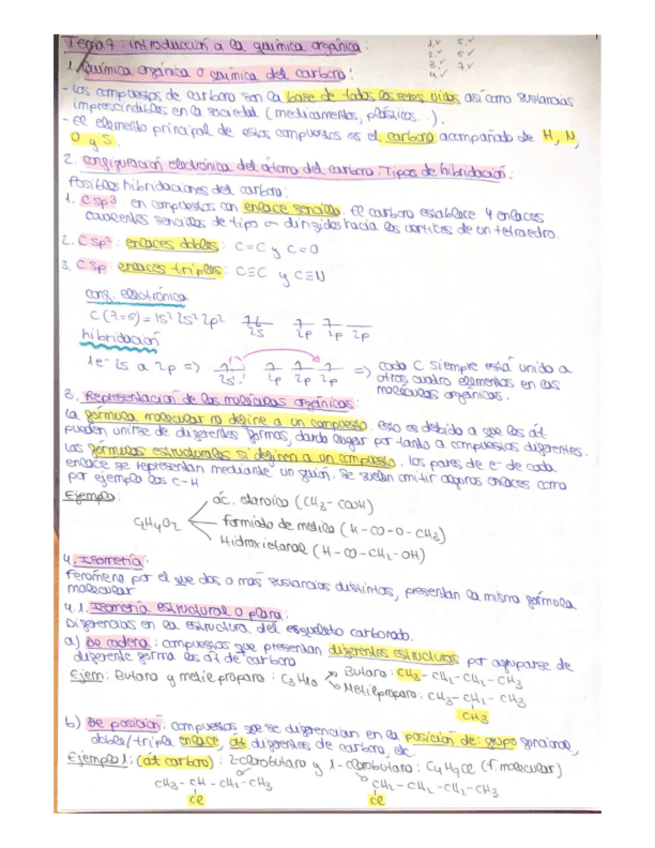 Tema 7: introducción a la química orgánica:
1✓ 5✓
2✓ 6✓
3✓ 7✓
4✓
1. Química orgánica o química del carbono:
- Los compuestos de carbono son la base de todos los seres vivos así como sustancias
imprescindibles en la sociedad (medicamentos, plásticos...).
- El elemento principal de estos compuestos es el carbono acompañado de H, N,
O y S.
2. Configuración electrónica del átomo del carbono. Tipos de hibridación:
Posibles hibridaciones del carbono:
1. C sp³ en compuestos con enlace sencillo. El carbono establece 4 enlaces
covalentes sencillos de tipo σ dirigidos hacia los vértices de un tetraedro.
2. C sp²: enlaces dobles: C=C y C=O
3. C sp: enlaces triples: C≡C y C≡N
conf. electrónica
C (Z=6) = 1s² 2s² 2p² 2s 2p 2p 2p
hibridación
1e⁻ 2s a 2p => 2s 2p 2p 2p => cada C siempre está unido a
otros cuatro elementos en las
moléculas orgánicas.
3. Representación de las moléculas orgánicas:
La fórmula molecular no define a un compuesto. Eso es debido a que los át
pueden unirse de diferentes formas, dando lugar por tanto a compuestos diferentes.
Las fórmulas estructurales si definen a un compuesto. Los pares de e⁻ de cada
enlace se representan mediante un guión. Se suelen omitir algunos enlaces como
por ejemplo los C-H
Ejemplo:
C₂H₄O₂
ác. etanoico (CH₃-COOH)
Formiato de metilo (H-CO-O-CH₃)
Hidroxietanal (H-CO-CH₂-OH)
4. Isomería:
Fenómeno por el que dos o más sustancias distintas, presentan la misma fórmula
molecular
4.1. Isomería estructural o plana:
Diferencias en la estructura del esqueleto carbonado.
a) De cadena: compuestos que presentan diferentes estructuras por agruparse de
diferente forma los át de carbono
Ejem: Butano y metilpropano: C₄H₁₀
Butano: CH₃-CH₂-CH₂-CH₃
Metilpropano: CH₃-CH-CH₃
CH₃
b) De posición: compuestos que se diferencian en la posición de: grupo funcional,
doble/triple enlace, át diferentes de carbono, etc.
Ejemplo 1: (át carbono): 2-clorobutano y 1-clorobutano: C₄H₉Cl (f. molecular)
CH₃-CH-CH₂-CH₃
Cl
CH₂-CH₂-CH₂-CH₃
Cl